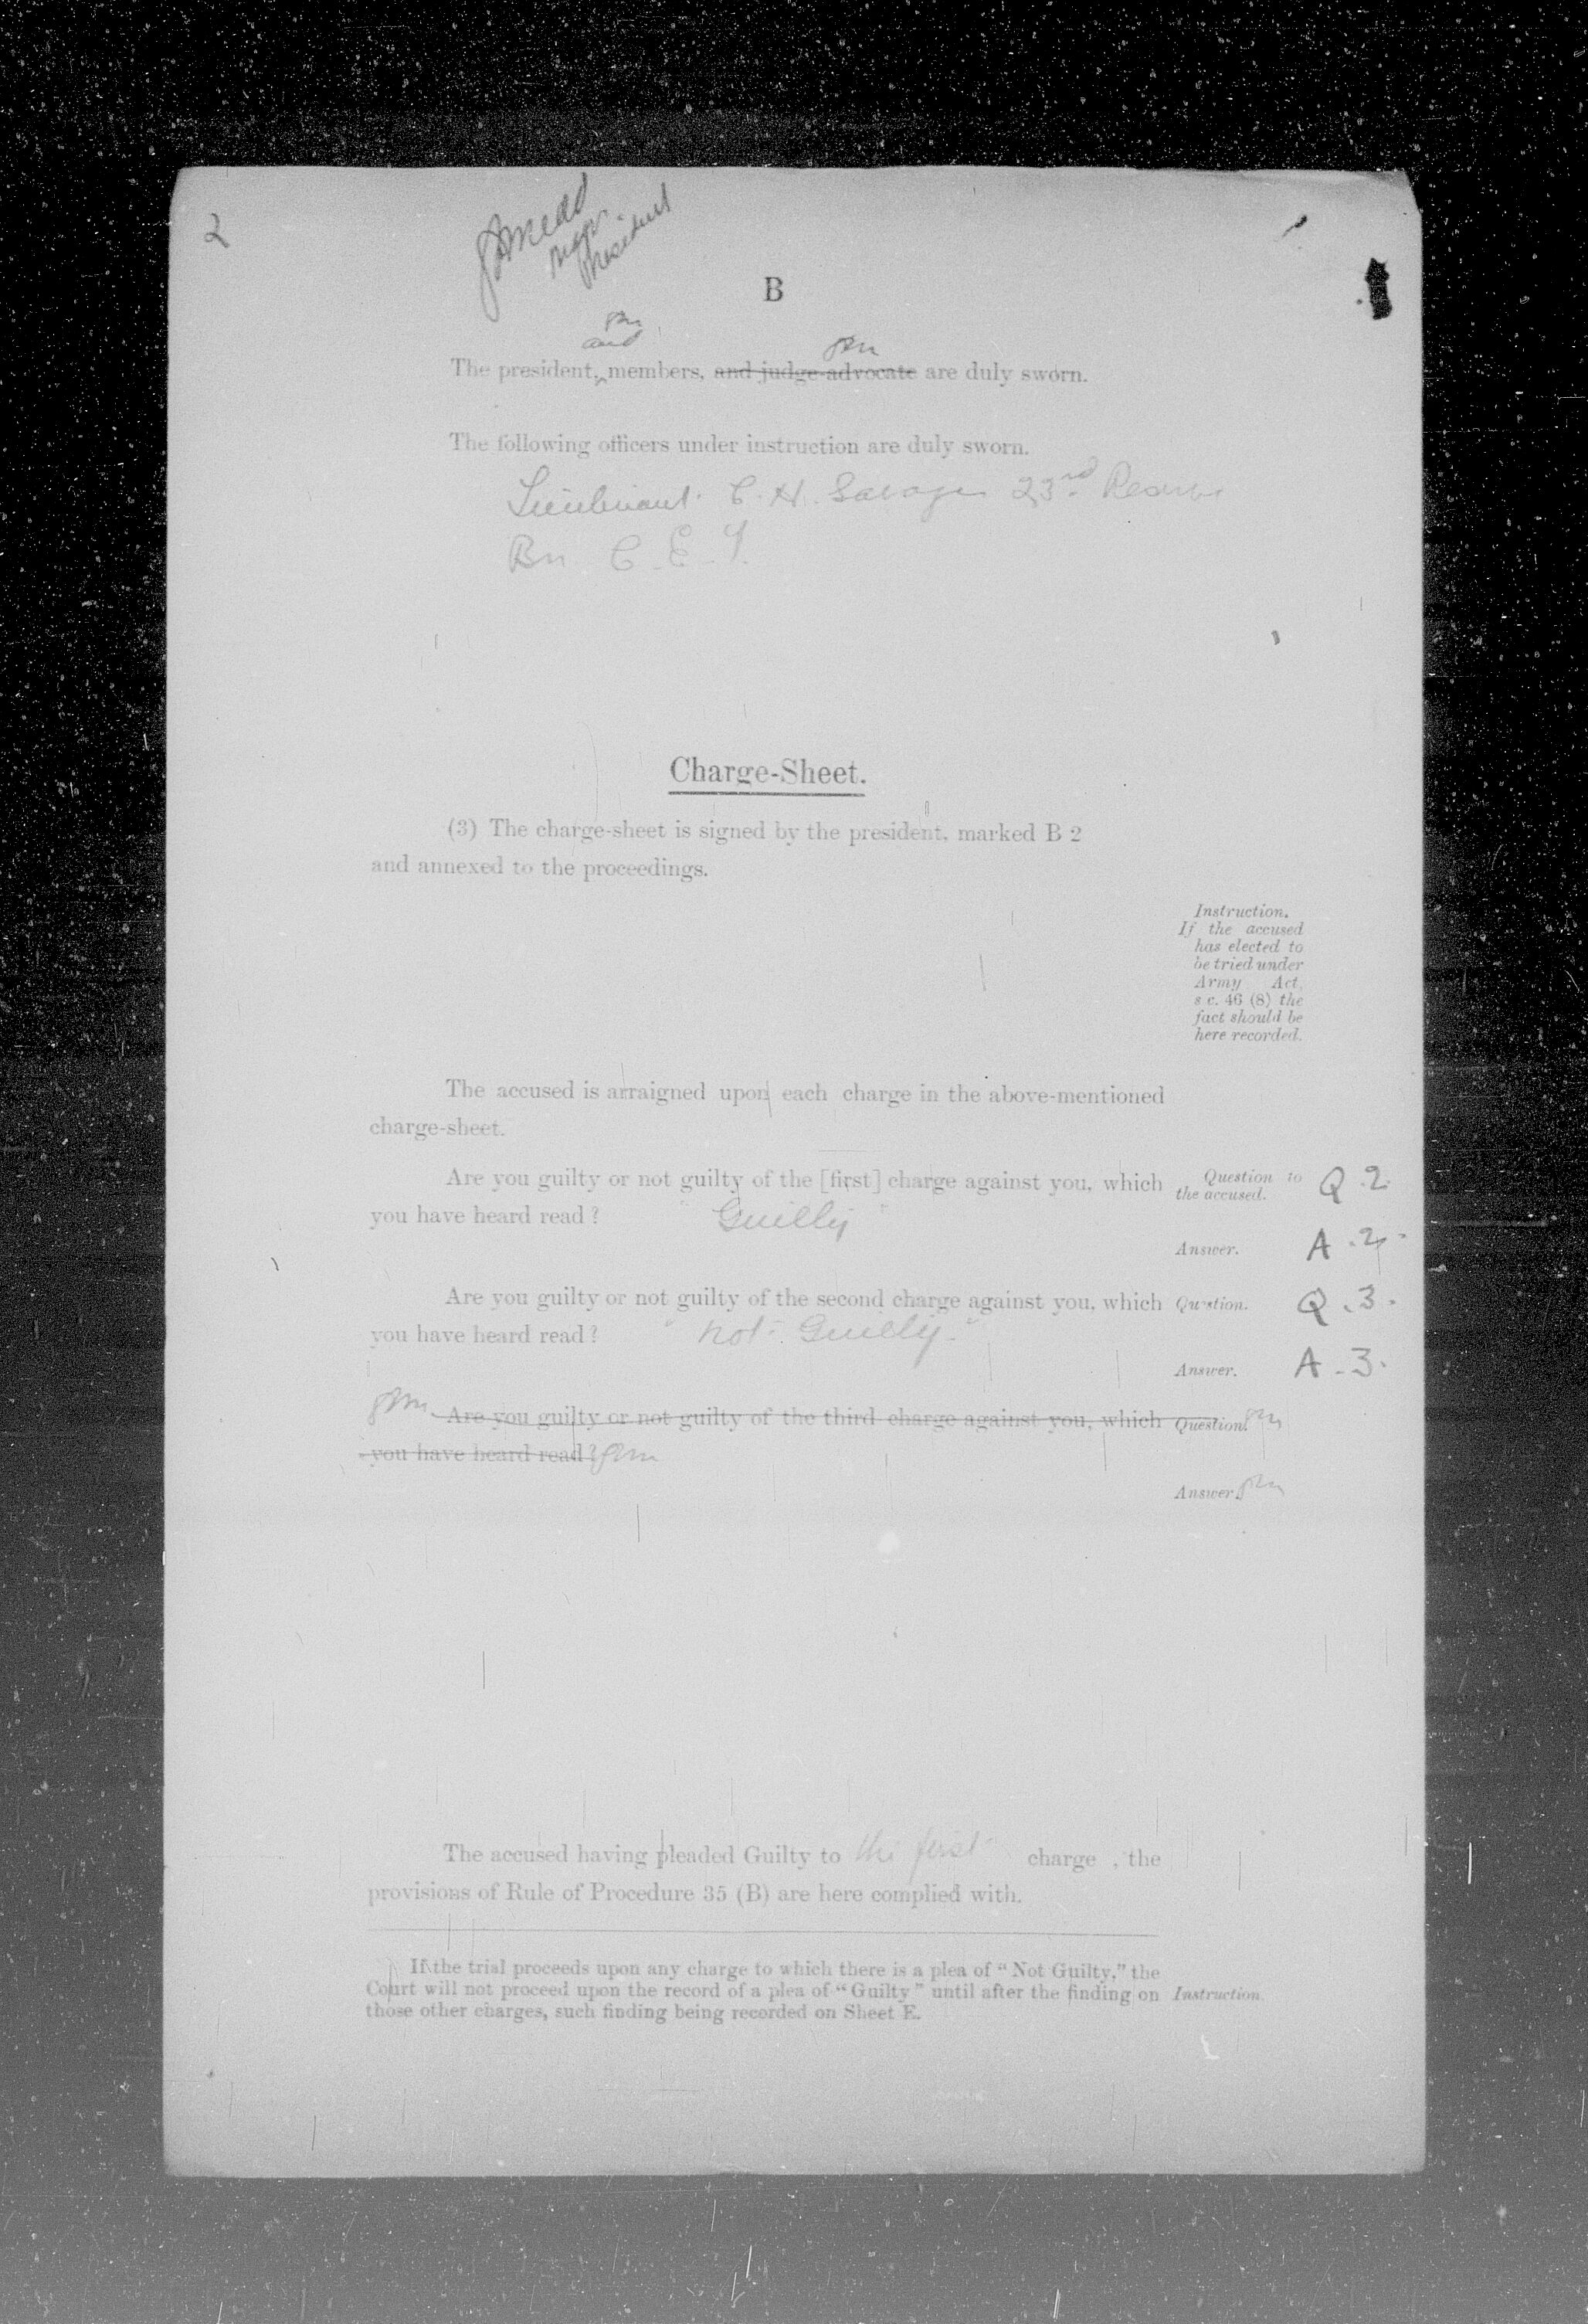 2
Mead
Major
President
B
and
The president, members, and judge-advocate are duly sworn.
The following officers under instruction are duly sworn.
Lieutenant C. H. Savage 23rd Reserve
Bn C. E. F.
Charge-Sheet.
(3) The charge-sheet is signed by the president, marked B 2
and annexed to the proceedings.
Instruction.
If the accused
has elected to
be tried under
Army Act,
s c. 46 (8) the
fact should be
here recorded.
The accused is arraigned upon each charge in the above-mentioned
charge-sheet.
Are you guilty or not guilty of the [first] charge against you, which Question to Q. 2.
the accused.
you have heard read? "Guilty"
Answer. A. 2.
Are you guilty or not guilty of the second charge against you, which Question. Q. 3.
you have heard read? "Not Guilty."
Answer. A. 3.
Are you guilty or not guilty of the third charge against you, which Question.
you have heard read?
Answer.
The accused having pleaded Guilty to the first charge , the
provisions of Rule of Procedure 35 (B) are here complied with.
If the trial proceeds upon any charge to which there is a plea of "Not Guilty," the
Court will not proceed upon the record of a plea of "Guilty" until after the finding on Instruction.
those other charges, such finding being recorded on Sheet E.